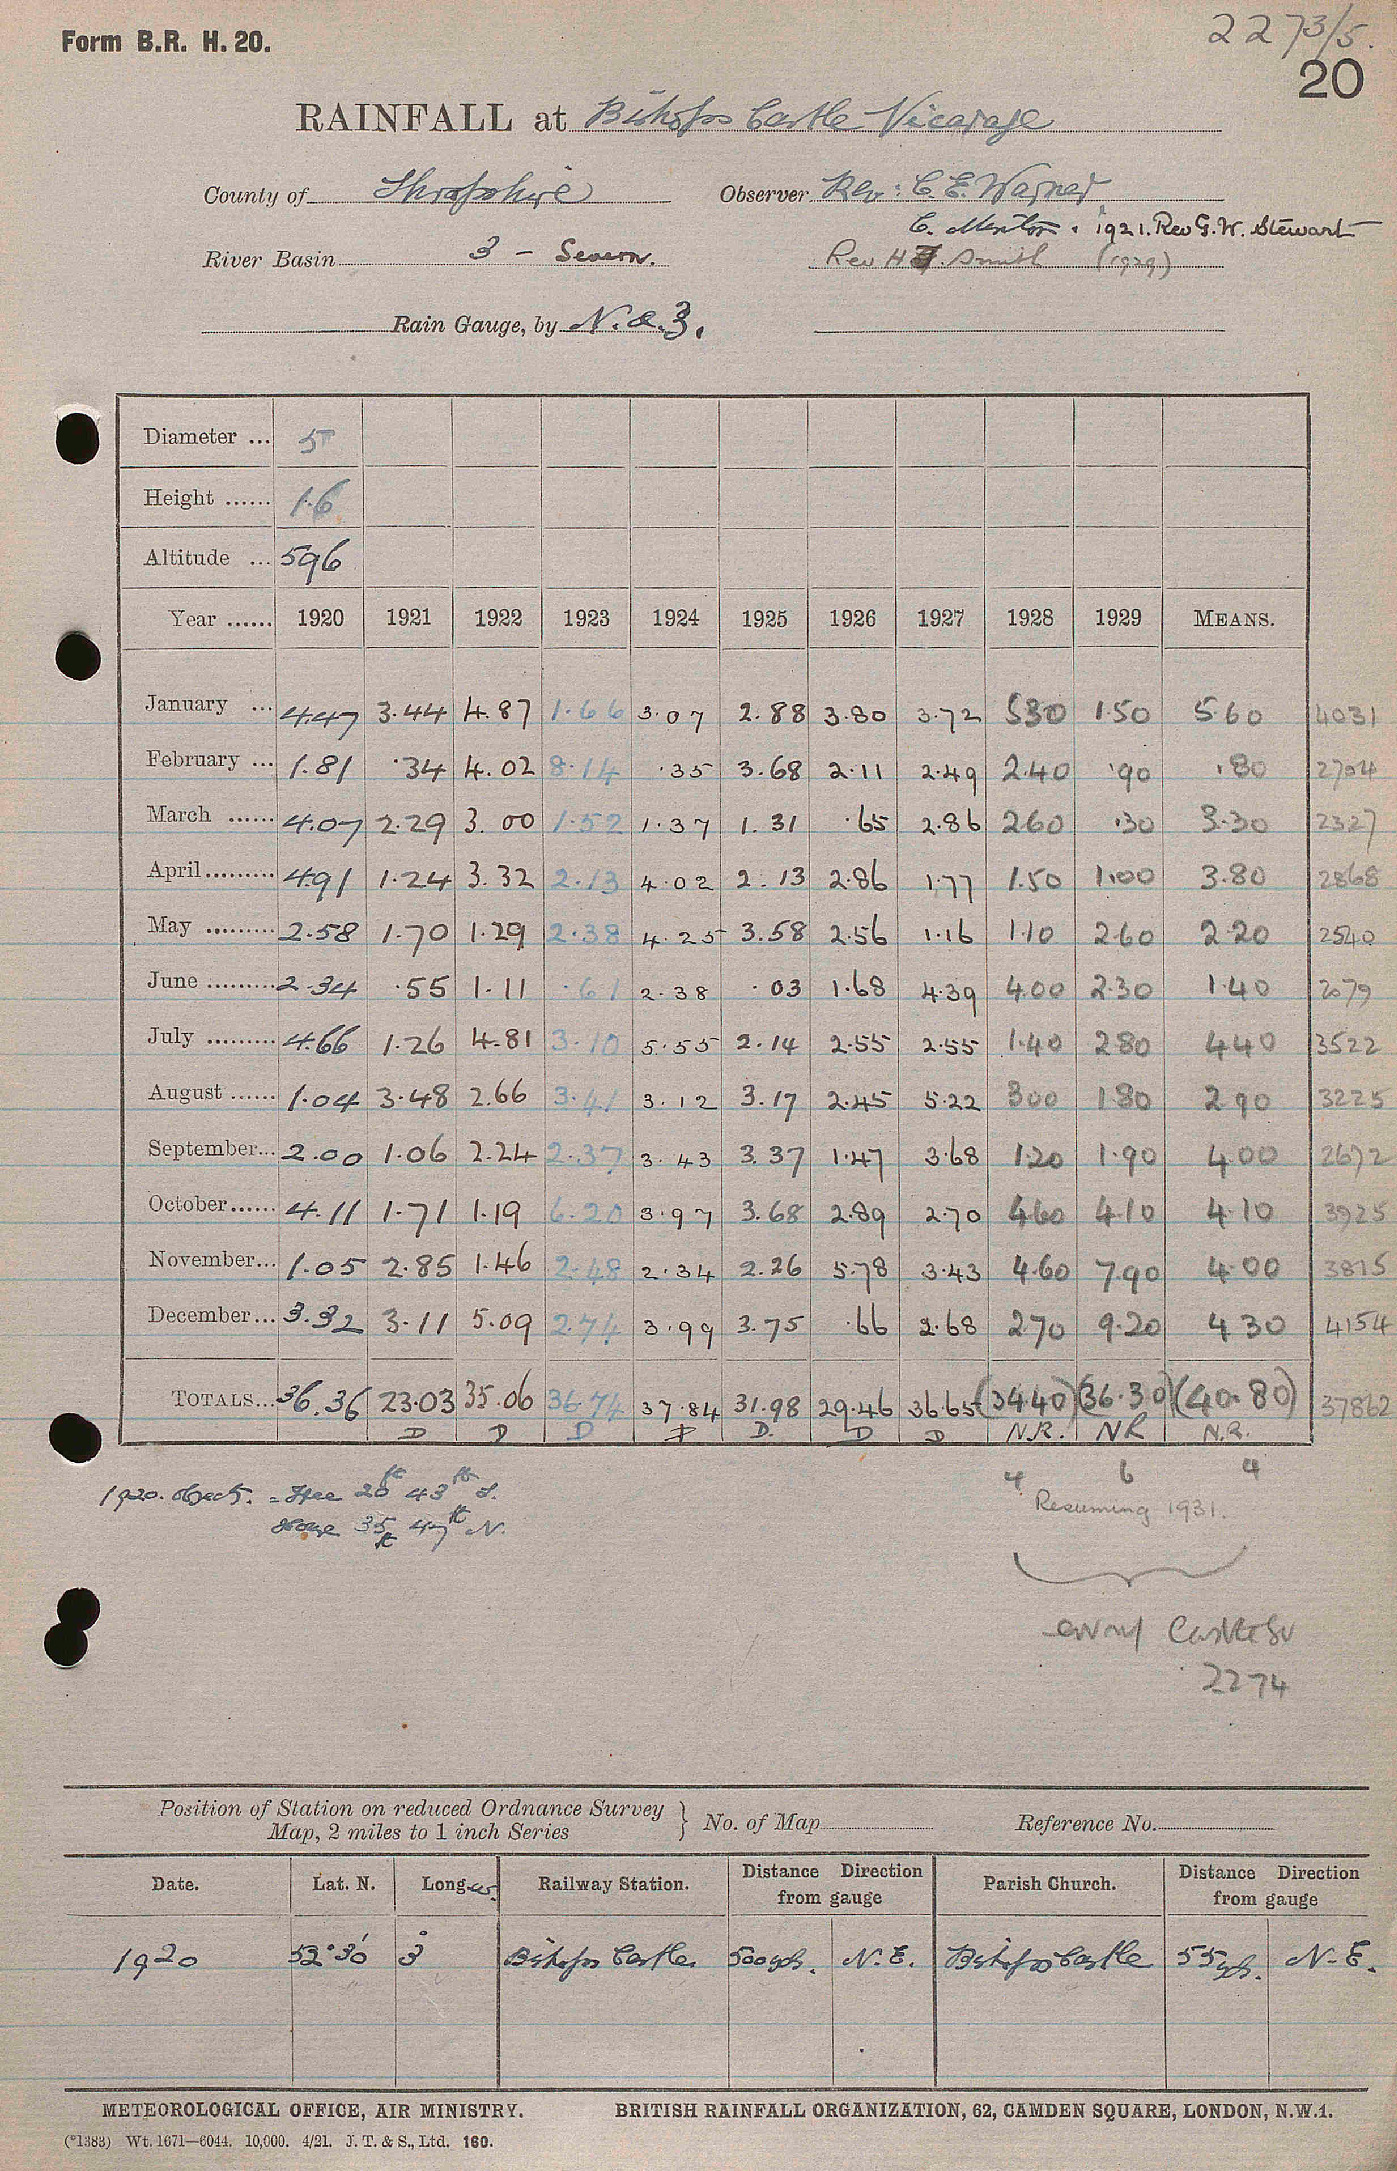 Form B.R. H. 20.
2273/5.
20
RAINFALL at Bishops Castle Vicarage
County of Shropshire Observer Rev: C. E. Warner
C. Menlton. 1921. Rev G. W. Stewart
River Basin 3 - Severn. Rev H Smith (1929)
Rain Gauge, by N. & Z.
Diameter ... 5
Height ...... 1.6
Altitude ... 596
Year ...... 1920 1921 1922 1923 1924 1925 1926 1927 1928 1929 MEANS.
January ... 4.47 3.44 4.87 1.66 3.07 2.88 3.80 3.72 530 1.50 5.60 4031
February ... 1.81 .34 4.02 8.14 .35 3.68 2.11 2.49 2.40 .90 .80 2704
March ...... 4.07 2.29 3.00 1.52 1.37 1.31 .65 2.86 260 .30 3.30 2327
April ......... 4.91 1.24 3.32 2.13 4.02 2.13 2.86 1.77 1.50 1.00 3.80 2868
May ......... 2.58 1.70 1.29 2.38 4.25 3.58 2.56 1.16 1.10 260 2.20 2540
June ......... 2.34 .55 1.11 .61 2.38 .03 1.68 4.39 4.00 2.30 1.40 2079
July ......... 4.66 1.26 4.81 3.10 5.55 2.14 2.55 2.55 1.40 280 440 3522
August ...... 1.04 3.48 2.66 3.41 3.12 3.17 2.45 5.22 300 180 290 3225
September... 2.00 1.06 2.24 2.37 3.43 3.37 1.47 3.68 120 1.90 4.00 2672
October...... 4.11 1.71 1.19 6.20 3.97 3.68 2.89 2.70 460 4.10 4.10 3925
November... 1.05 2.85 1.46 2.48 2.34 2.26 5.78 3.43 4.60 7.90 4.00 3815
December... 3.32 3.11 5.09 2.74 3.99 3.75 .66 2.68 270 9.20 4 30 4154
TOTALS... 36.36 23.03 35.06 36.74 37.84 31.98 29.46 36.65 (34.40) (36.30) (40.80) 37862
D D D D D. D D N.R. NR N.R.
4 6 4
1920. object. = Tree 20ft 43ft S.
House 35ft 47ft N.
Resuming 1931.
Castle Sv
2274
Position of Station on reduced Ordnance Survey
Map, 2 miles to 1 inch Series } No. of Map Reference No.
Date. Lat. N. Long. W. Railway Station. Distance Direction from gauge Parish Church. Distance Direction from gauge
1920 52°30' 3° Bishops Castle. 500 yds. N.E. Bishops Castle 55 yds. N.E.
METEOROLOGICAL OFFICE, AIR MINISTRY. BRITISH RAINFALL ORGANIZATION, 62, CAMDEN SQUARE, LONDON, N.W.1.
(*1383) Wt. 1671—6044. 10,000. 4/21. J. T. & S., Ltd. 160.